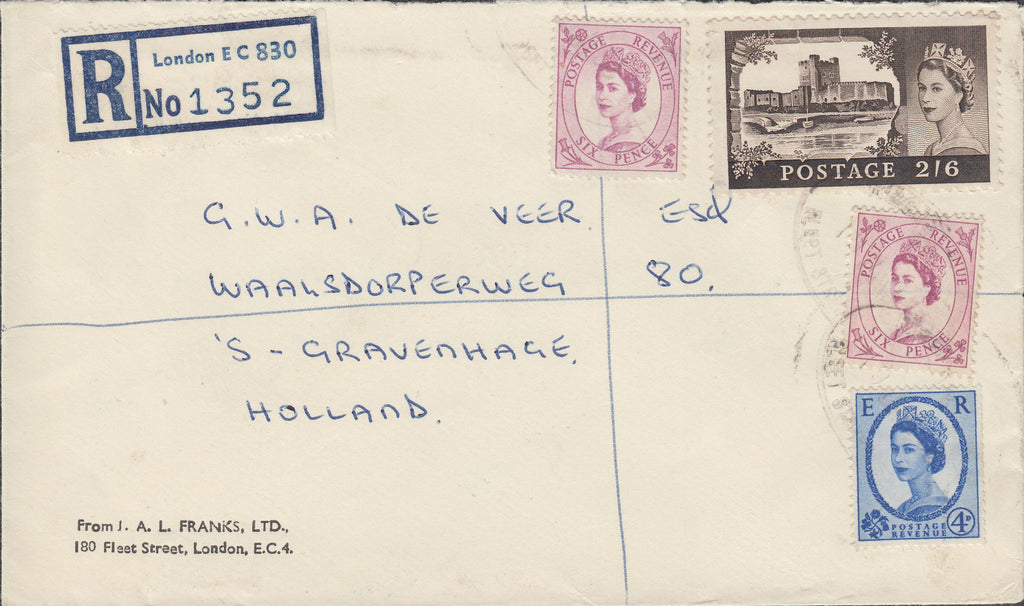 R
London E C 830
No 1352
POSTAGE REVENUE
SIX PENCE
POSTAGE 2/6
G.W.A. DE VEER ESQ
WAALSDORPERWEG 80.
'S-GRAVENHAGE.
HOLLAND.
POSTAGE REVENUE
SIX PENCE
E R
POSTAGE
REVENUE
4D
From J. A. L. FRANKS, LTD.,
180 Fleet Street, London, E.C.4.